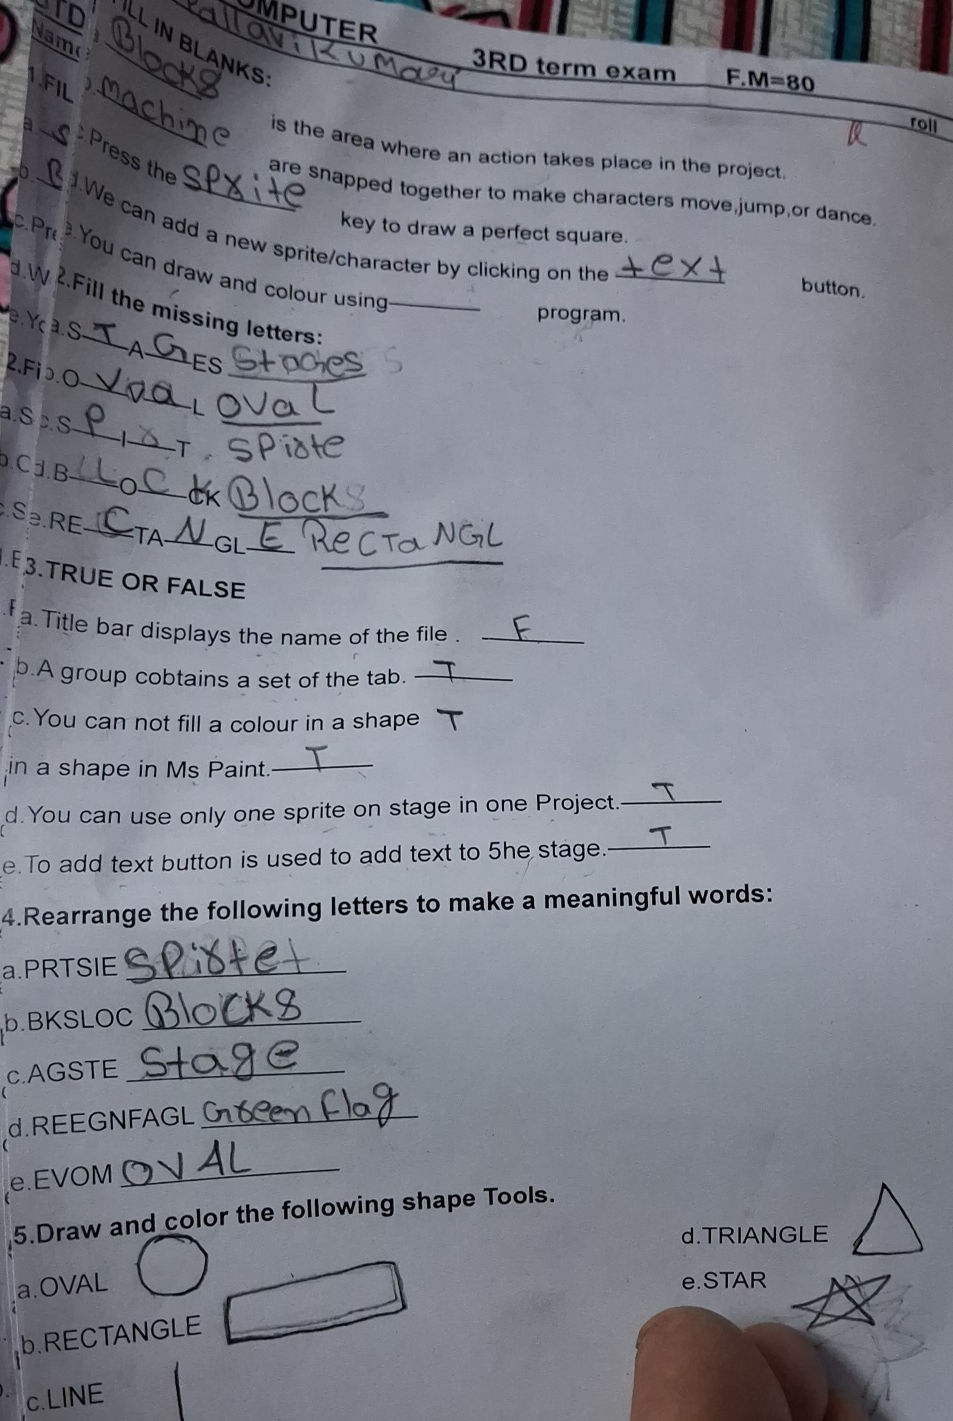 OMPUTER 3RD term exam F.M=80
Pallavi Kumary roll
ILL IN BLANKS:
Blocks is the area where an action takes place in the project.
machine are snapped together to make characters move,jump,or dance.
Press the Sprite key to draw a perfect square.
d.We can add a new sprite/character by clicking on the text button.
e.You can draw and colour using program.
2.Fill the missing letters:
a.S T A G ES Stages
O Vaa L OVaL
c.S P I r T Spirte
d.B LL O C CK Blocks
e.RE C TA N GL E RECTaNGL
3.TRUE OR FALSE
a.Title bar displays the name of the file . F
b.A group cobtains a set of the tab. T
c.You can not fill a colour in a shape T
in a shape in Ms Paint. T
d.You can use only one sprite on stage in one Project. T
e.To add text button is used to add text to 5he stage. T
4.Rearrange the following letters to make a meaningful words:
a.PRTSIE Spirtet
b.BKSLOC Blocks
c.AGSTE Stage
d.REEGNFAGL Green flag
e.EVOM OVAL
5.Draw and color the following shape Tools.
a.OVAL d.TRIANGLE
b.RECTANGLE e.STAR
c.LINE